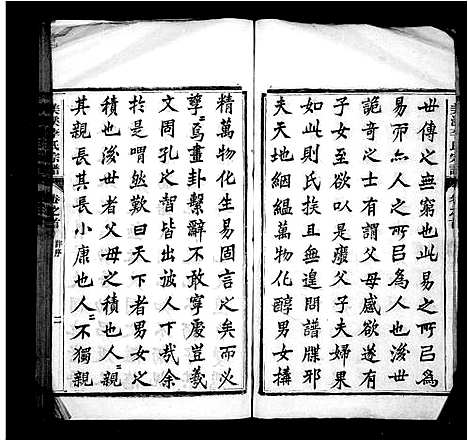 世傳之無窮也此易之所㠯爲
易而無人之所㠯爲人也後世
詭奇之士有謂父母感欲遂有
子女至欲以是廢父子夫婦果
若此則氏族且無遑問譜牒邪
夫天地絪縕萬物化醇男女構
精萬物化生易固言之矣而必
孳二焉畫卦繫辭不敢寧處豈羲
文周孔之智皆出此天下哉余
於是喟然歎曰天下者男女之
積也後世者父母之積也人二親
其親長其長小康也人二不獨親
美溪李氏宗譜
卷之首
序
二